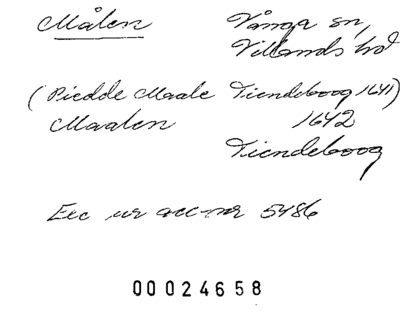 Målen Vånga sn,
Villands hd
(Piedde Maale Tiendeboog 1641)
Maalen 1642
Tiendeboog
Exc ur acc-nr 5486
00024658